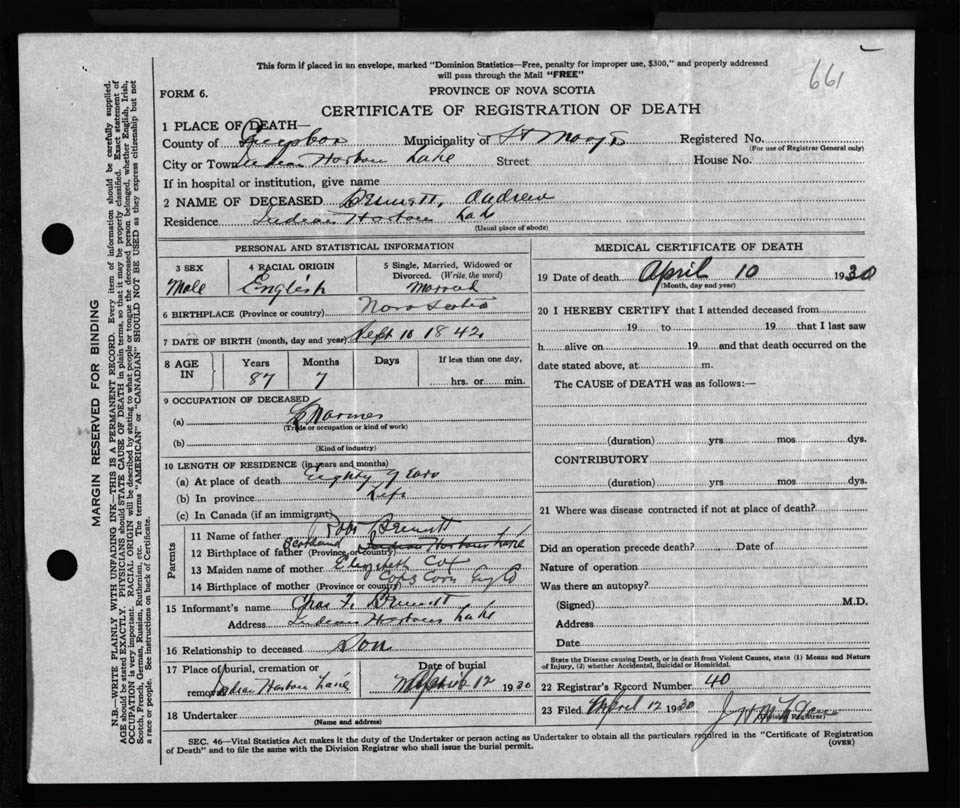 661
This form if placed in an envelope, marked "Dominion Statistics—Free, penalty for improper use, $300," and properly addressed
will pass through the Mail "FREE"
FORM 6.
PROVINCE OF NOVA SCOTIA
CERTIFICATE OF REGISTRATION OF DEATH
1 PLACE OF DEATH—
County of Municipality of St Mary's Registered No.
(For use of Registrar General only)
City or Town Indian Harbour Lake Street House No.
If in hospital or institution, give name
2 NAME OF DECEASED Bennett, Andrew
Residence Indian Harbour Lake
(Usual place of abode)
PERSONAL AND STATISTICAL INFORMATION
3 SEX
Male
4 RACIAL ORIGIN
English
5 Single, Married, Widowed or
Divorced. (Write the word)
Married
6 BIRTHPLACE (Province or country) Nova Scotia
7 DATE OF BIRTH (month, day and year) Sept 10 1842
8 AGE IN
Years
87
Months
7
Days
If less than one day,
hrs. or min.
9 OCCUPATION OF DECEASED
(a) Farmer
(Trade or occupation or kind of work)
(b)
(Kind of industry)
10 LENGTH OF RESIDENCE (in years and months)
(a) At place of death Eighty years
(b) In province Life
(c) In Canada (if an immigrant)
Parents
11 Name of father Bennett
12 Birthplace of father (Province or country) Scotland Indian Harbour Lake
13 Maiden name of mother Elizabeth Cox
14 Birthplace of mother (Province or country)
15 Informant's name Chas F. Bennett
Address Indian Harbour Lake
16 Relationship to deceased Son
17 Place of burial, cremation or
removal Indian Harbour Lake
Date of burial
April 12 1930
18 Undertaker
(Name and address)
MEDICAL CERTIFICATE OF DEATH
19 Date of death April 10 1930
(Month, day and year)
20 I HEREBY CERTIFY that I attended deceased from
19 to 19 that I last saw
h alive on 19 and that death occurred on the
date stated above, at m.
The CAUSE of DEATH was as follows:—
(duration) yrs mos dys.
CONTRIBUTORY
(duration) yrs mos dys.
21 Where was disease contracted if not at place of death?
Did an operation precede death? Date of
Nature of operation
Was there an autopsy?
(Signed) M.D.
Address
Date
State the Disease causing Death, or in death from Violent Causes, state (1) Means and Nature
of Injury, (2) whether Accidental, Suicidal or Homicidal.
22 Registrar's Record Number 40
23 Filed April 12 1930
(Division Registrar)
SEC. 46—Vital Statistics Act makes it the duty of the Undertaker or person acting as Undertaker to obtain all the particulars required in the "Certificate of Registration
of Death" and to file the same with the Division Registrar who shall issue the burial permit.
(OVER)
MARGIN RESERVED FOR BINDING
N.B.—WRITE PLAINLY WITH UNFADING INK—THIS IS A PERMANENT RECORD. Every item of information should be carefully supplied.
AGE should be stated EXACTLY. PHYSICIANS should STATE CAUSE OF DEATH in plain terms, so that it may be properly classified. Exact statement of
OCCUPATION is very important. RACIAL ORIGIN will be described by stating to what people or tongue the deceased person belonged, whether English, Irish,
Scotch, French, German, Russian, Ruthenian, etc. The terms "AMERICAN" or "CANADIAN" SHOULD NOT BE USED as they express citizenship but not
a race or people. See instructions on back of Certificate.